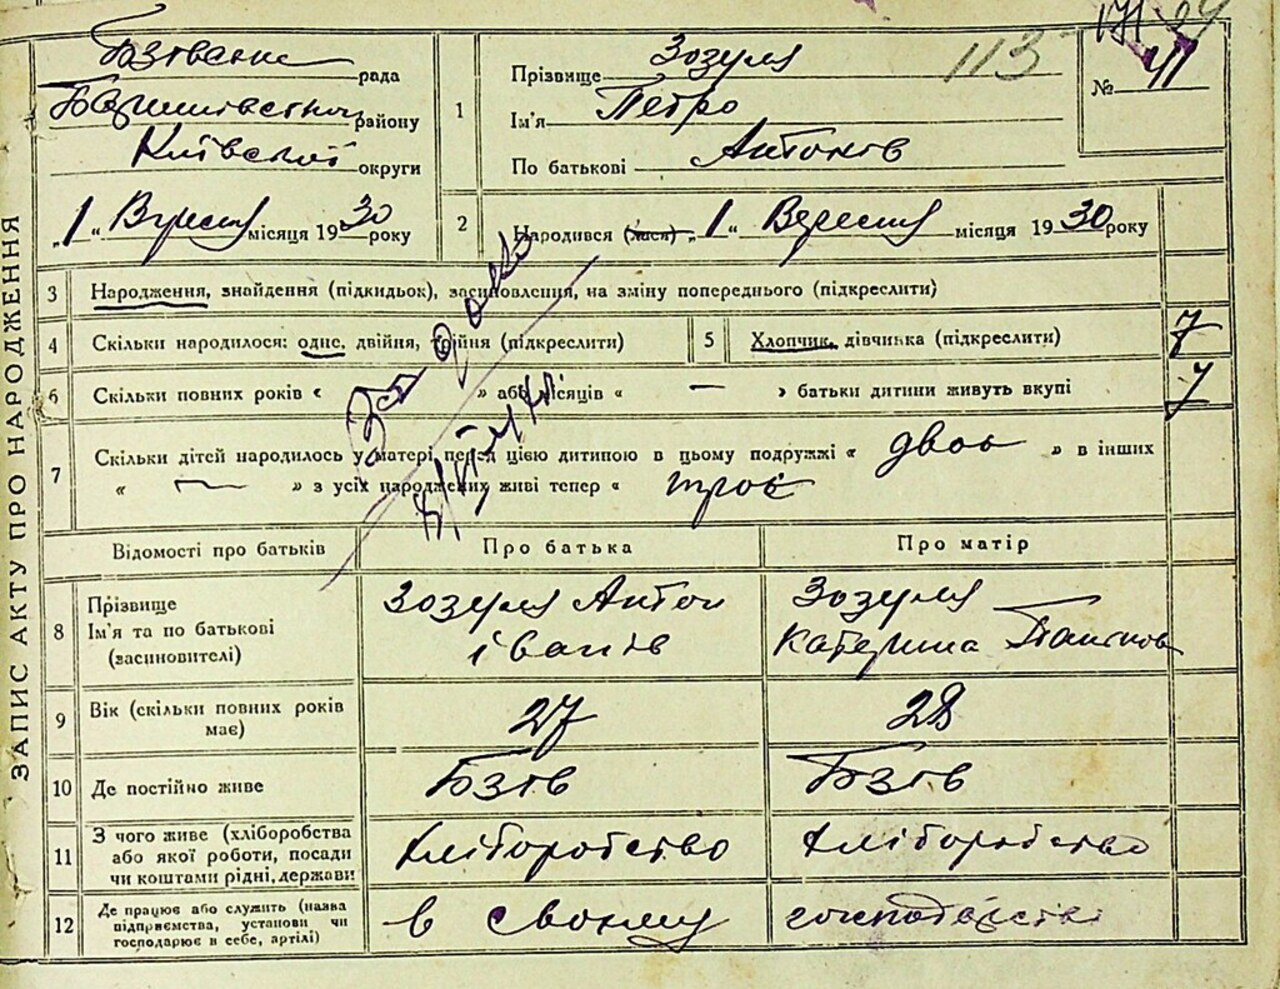 ЗАПИС АКТУ ПРО НАРОДЖЕННЯ
Бзівська рада
Баришівського району
Київської округи
„1“ Вересня місяця 1930 року
113
№ 41
1 Прізвище Зозуля
Ім'я Петро
По батькові Антонів
2 Народився (лася) „1“ Вересня місяця 1930 року
3 Народження, знайдення (підкидьок), засиновлення, на зміну попереднього (підкреслити)
4 Скільки народилося: одне, двійня, трійня (підкреслити)
5 Хлопчик, дівчинка (підкреслити)
7
6 Скільки повних років « » або місяців « — » батьки дитини живуть вкупі
7
7 Скільки дітей народилось у матері перед цією дитиною в цьому подружжі « двоє » в інших
« — » з усіх народжених живі тепер « троє
Відомості про батьків Про батька Про матір
8 Прізвище
Ім'я та по батькові
(засиновителі)
Зозуля Антон
Іванів
Зозуля
Катерина
9 Вік (скільки повних років
має)
27 28
10 Де постійно живе Бзів Бзів
11 З чого живе (хліборобства
або якої роботи, посади
чи коштами рідні, держави
хліборобство хліборобство
12 Де працює або служить (назва
підприємства, установи чи
господарює в себе, артілі)
в своєму господарстві